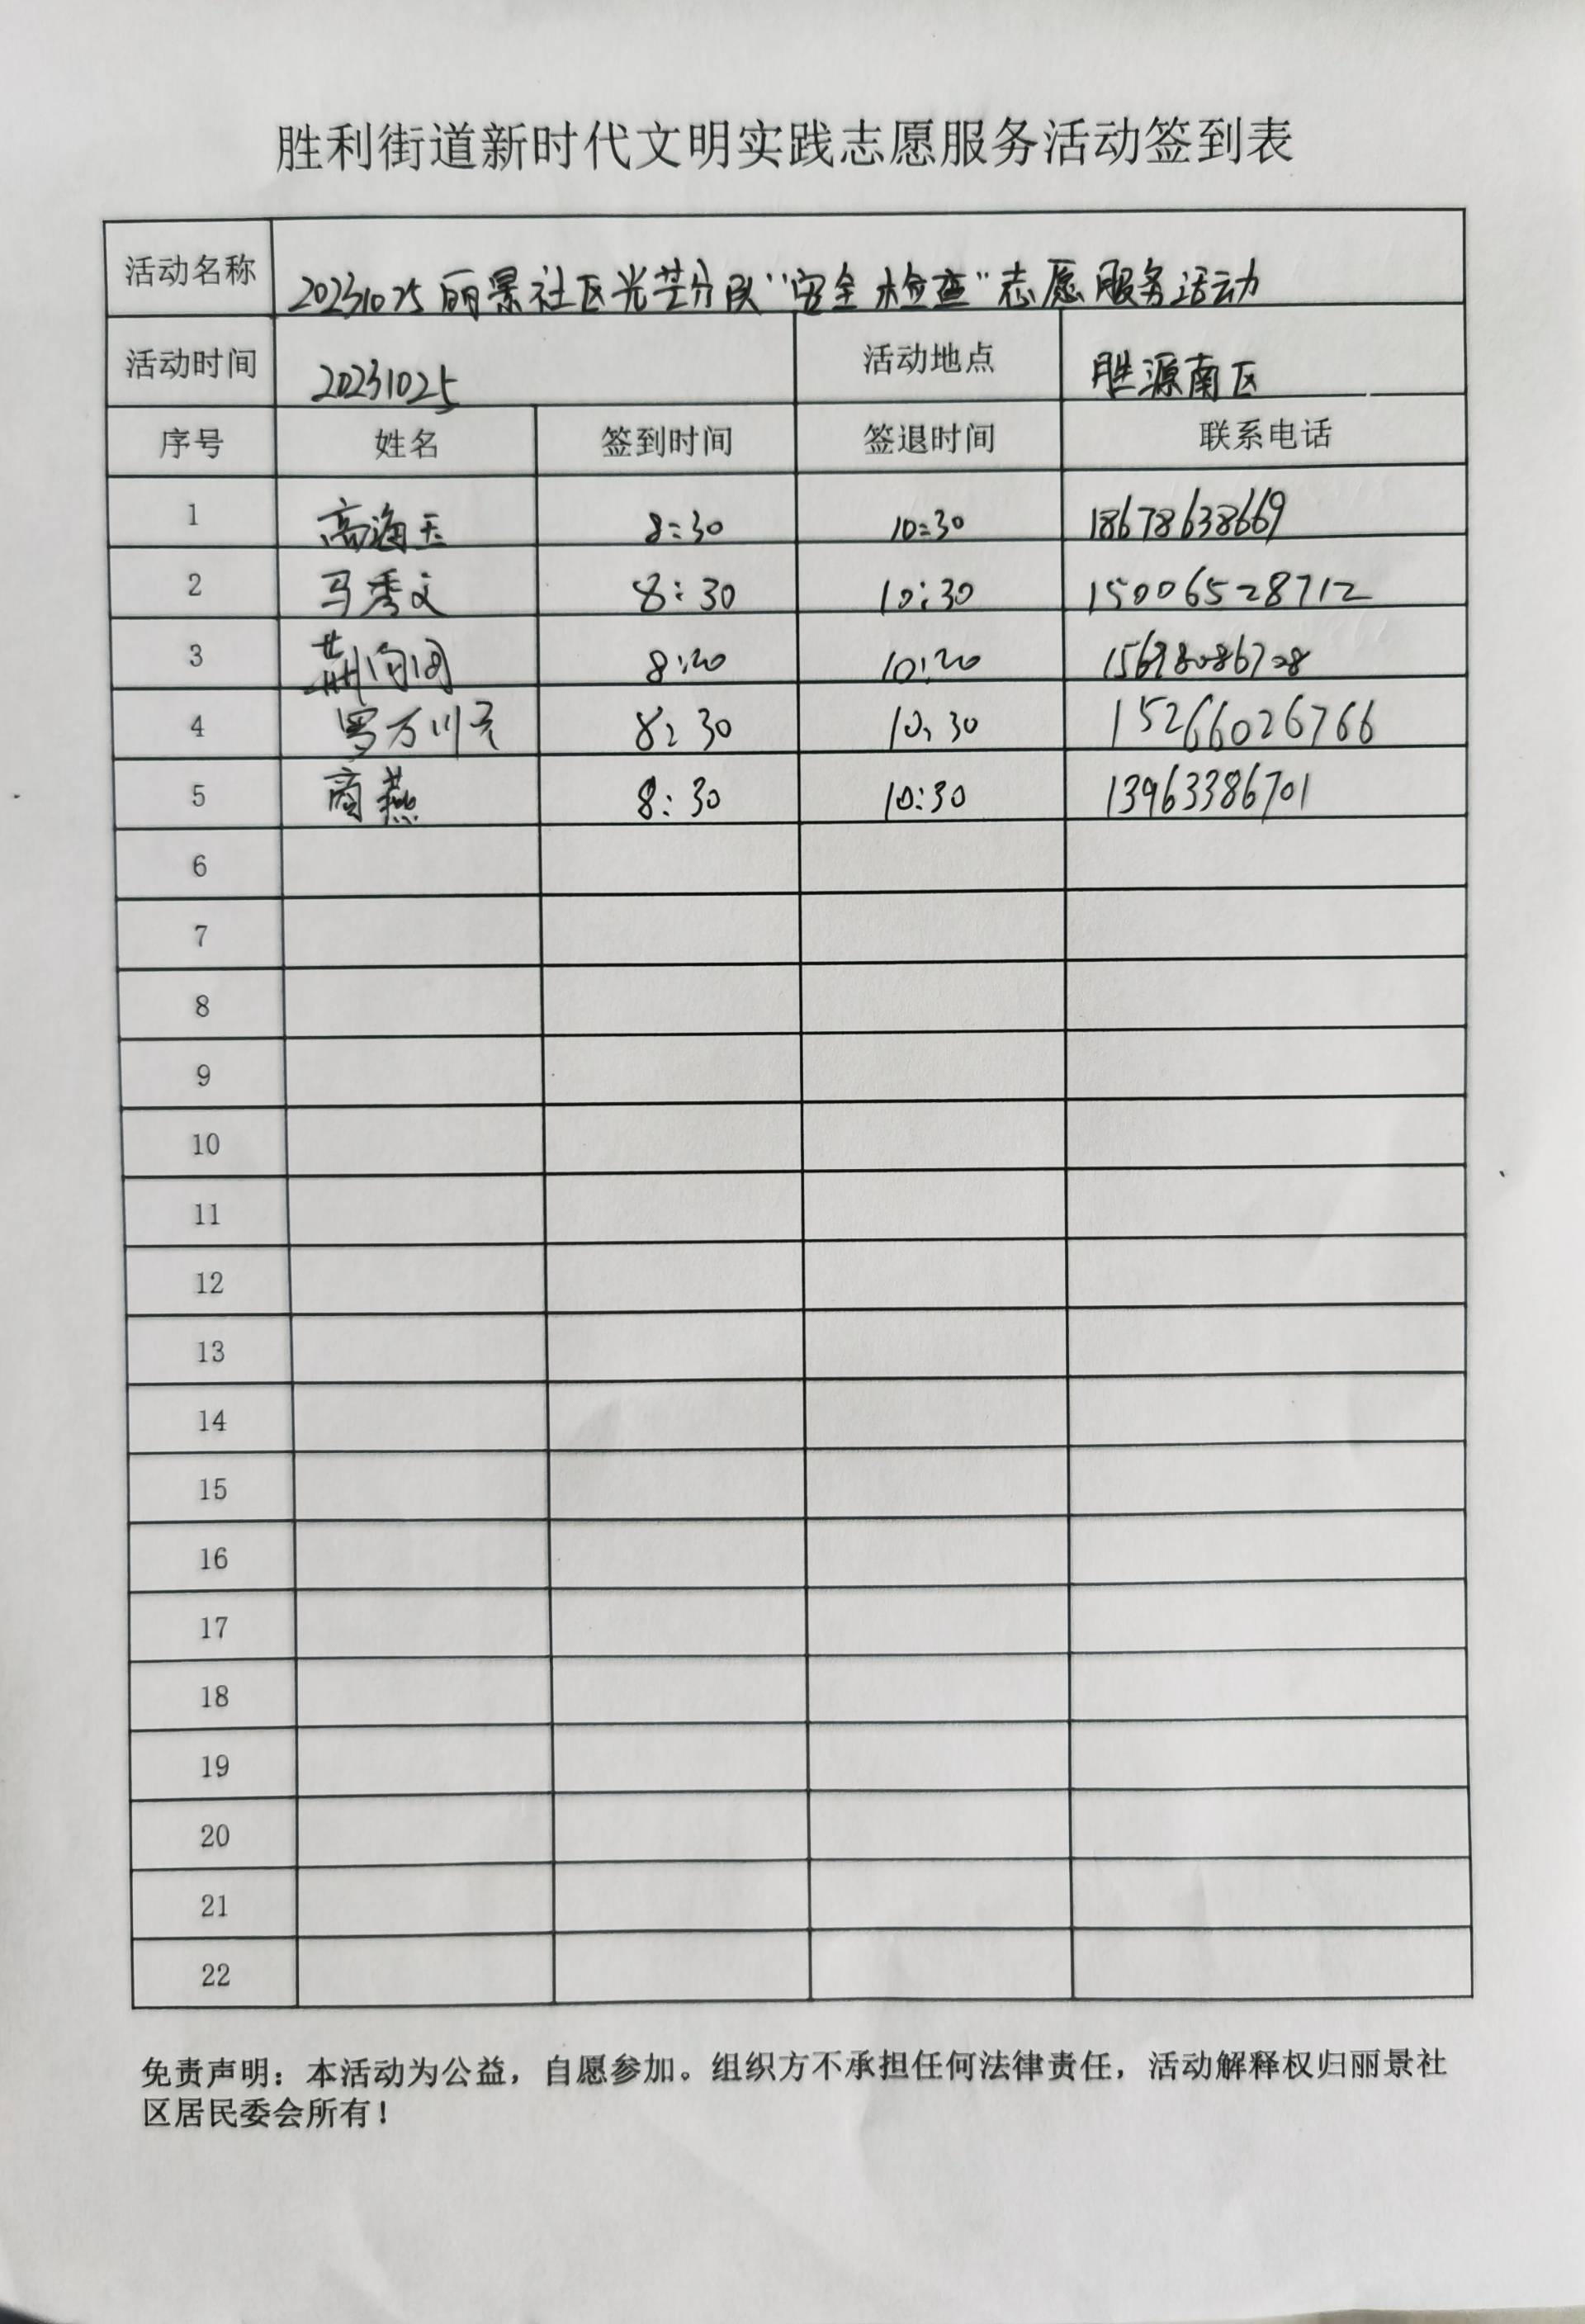 胜利街道新时代文明实践志愿服务活动签到表
活动名称 20231025丽景社区光芒分队“安全检查”志愿服务活动
活动时间 20231025 活动地点 胜源南区
序号 姓名 签到时间 签退时间 联系电话
1 高海玉 8:30 10:30 18678638669
2 马秀文 8:30 10:30 15006528712
3 8:20 10:20
4 罗万 8:30 10:30 15266026766
5 商燕 8:30 10:30 13963386701
6
7
8
9
10
11
12
13
14
15
16
17
18
19
20
21
22
免责声明：本活动为公益，自愿参加。组织方不承担任何法律责任，活动解释权归丽景社
区居民委会所有！